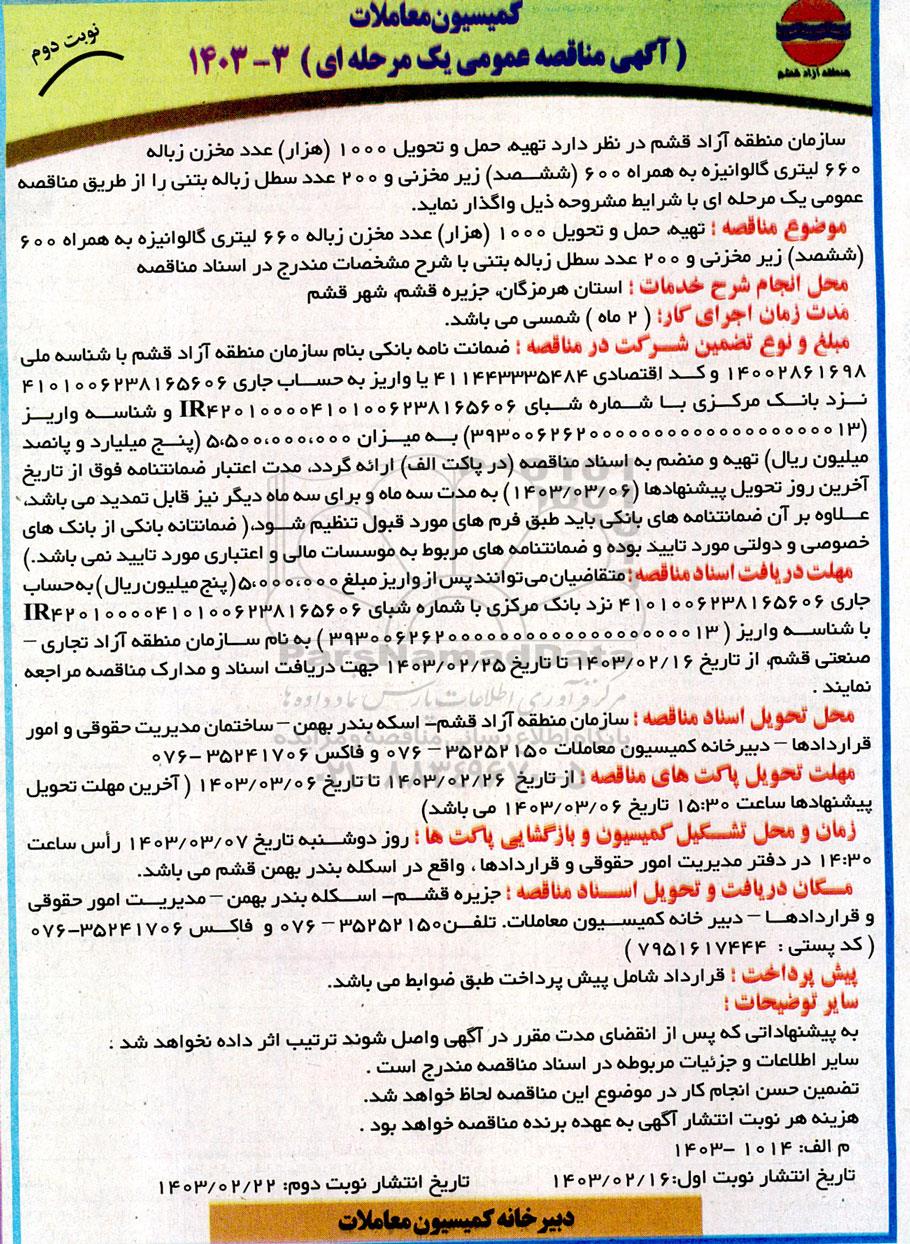 کمیسیون معاملات
( آگهی مناقصه عمومی یک مرحله ای ) ۳ - ۱۴۰۳
نوبت دوم
منطقه آزاد قشم
سازمان منطقه آزاد قشم در نظر دارد تهیه، حمل و تحویل ۱۰۰۰ (هزار) عدد مخزن زباله
۶۶۰ لیتری گالوانیزه به همراه ۶۰۰ (ششصد) زیر مخزنی و ۲۰۰ عدد سطل زباله بتنی را از طریق مناقصه
عمومی یک مرحله ای با شرایط مشروحه ذیل واگذار نماید.
موضوع مناقصه : تهیه، حمل و تحویل ۱۰۰۰ (هزار) عدد مخزن زباله ۶۶۰ لیتری گالوانیزه به همراه ۶۰۰
(ششصد) زیر مخزنی و ۲۰۰ عدد سطل زباله بتنی با شرح مشخصات مندرج در اسناد مناقصه
محل انجام شرح خدمات : استان هرمزگان، جزیره قشم، شهر قشم
مدت زمان اجرای کار: ( ۲ ماه ) شمسی می باشد.
مبلغ و نوع تضمین شرکت در مناقصه : ضمانت نامه بانکی بنام سازمان منطقه آزاد قشم با شناسه ملی
۱۴۰۰۲۸۶۱۶۹۸ و کد اقتصادی ۴۱۱۴۴۳۳۳۵۴۸۴ یا واریز به حساب جاری ۴۱۰۱۰۰۶۲۳۸۱۶۵۶۰۶
نزد بانک مرکزی با شماره شبای IR۴۲۰۱۰۰۰۰۴۱۰۱۰۰۶۲۳۸۱۶۵۶۰۶ و شناسه واریز
(۳۹۳۰۰۶۲۶۲۰۰۰۰۰۰۰۰۰۰۰۰۰۰۰۰۰۰۰۱۳) به میزان ۵،۵۰۰،۰۰۰،۰۰۰ (پنج میلیارد و پانصد
میلیون ریال) تهیه و منضم به اسناد مناقصه (در پاکت الف) ارائه گردد، مدت اعتبار ضمانتنامه فوق از تاریخ
آخرین روز تحویل پیشنهادها (۱۴۰۳/۰۳/۰۶) به مدت سه ماه و برای سه ماه دیگر نیز قابل تمدید می باشد،
علاوه بر آن ضمانتنامه های بانکی باید طبق فرم های مورد قبول تنظیم شود،( ضمانتانه بانکی از بانک های
خصوصی و دولتی مورد تایید بوده و ضمانتنامه های مربوط به موسسات مالی و اعتباری مورد تایید نمی باشد.)
مهلت دریافت اسناد مناقصه: متقاضیان می توانند پس از واریز مبلغ ۵،۰۰۰،۰۰۰ (پنج میلیون ریال) به حساب
جاری ۴۱۰۱۰۰۶۲۳۸۱۶۵۶۰۶ نزد بانک مرکزی با شماره شبای IR۴۲۰۱۰۰۰۰۴۱۰۱۰۰۶۲۳۸۱۶۵۶۰۶
با شناسه واریز ( ۳۹۳۰۰۶۲۶۲۰۰۰۰۰۰۰۰۰۰۰۰۰۰۰۰۰۰۰۱۳ ) به نام سازمان منطقه آزاد تجاری –
صنعتی قشم، از تاریخ ۱۴۰۳/۰۲/۱۶ تا تاریخ ۱۴۰۳/۰۲/۲۵ جهت دریافت اسناد و مدارک مناقصه مراجعه
نمایند .
محل تحویل اسناد مناقصه : سازمان منطقه آزاد قشم- اسکه بندر بهمن – ساختمان مدیریت حقوقی و امور
قراردادها – دبیرخانه کمیسیون معاملات ۳۵۲۵۲۱۵۰ – ۰۷۶ و فاکس ۳۵۲۴۱۷۰۶ -۰۷۶
مهلت تحویل پاکت های مناقصه : از تاریخ ۱۴۰۳/۰۲/۲۶ تا تاریخ ۱۴۰۳/۰۳/۰۶ ( آخرین مهلت تحویل
پیشنهادها ساعت ۱۵:۳۰ تاریخ ۱۴۰۳/۰۳/۰۶ می باشد)
زمان و محل تشکیل کمیسیون و بازگشایی پاکت ها : روز دوشنبه تاریخ ۱۴۰۳/۰۳/۰۷ رأس ساعت
۱۴:۳۰ در دفتر مدیریت امور حقوقی و قراردادها ، واقع در اسکله بندر بهمن قشم می باشد.
مکان دریافت و تحویل اسناد مناقصه : جزیره قشم- اسکله بندر بهمن – مدیریت امور حقوقی
و قراردادها – دبیر خانه کمیسیون معاملات. تلفن ۳۵۲۵۲۱۵۰ – ۰۷۶ و فاکس ۳۵۲۴۱۷۰۶-۰۷۶
( کد پستی : ۷۹۵۱۶۱۷۴۴۴ )
پیش پرداخت : قرارداد شامل پیش پرداخت طبق ضوابط می باشد.
سایر توضیحات :
به پیشنهاداتی که پس از انقضای مدت مقرر در آگهی واصل شوند ترتیب اثر داده نخواهد شد .
سایر اطلاعات و جزئیات مربوطه در اسناد مناقصه مندرج است .
تضمین حسن انجام کار در موضوع این مناقصه لحاظ خواهد شد.
هزینه هر نوبت انتشار آگهی به عهده برنده مناقصه خواهد بود .
م الف: ۱۰۱۴ -۱۴۰۳
تاریخ انتشار نوبت اول:۱۴۰۳/۰۲/۱۶ تاریخ انتشار نوبت دوم: ۱۴۰۳/۰۲/۲۲
دبیرخانه کمیسیون معاملات
ParsNamadData
مرکز فرآوری اطلاعات پارس نماد داده ها
پایگاه اطلاع رسانی مناقصه و مزایده